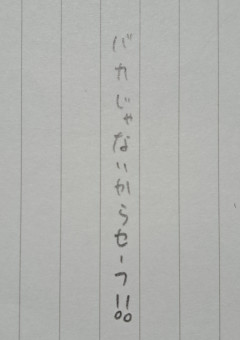 バカじゃないからセーフ!!